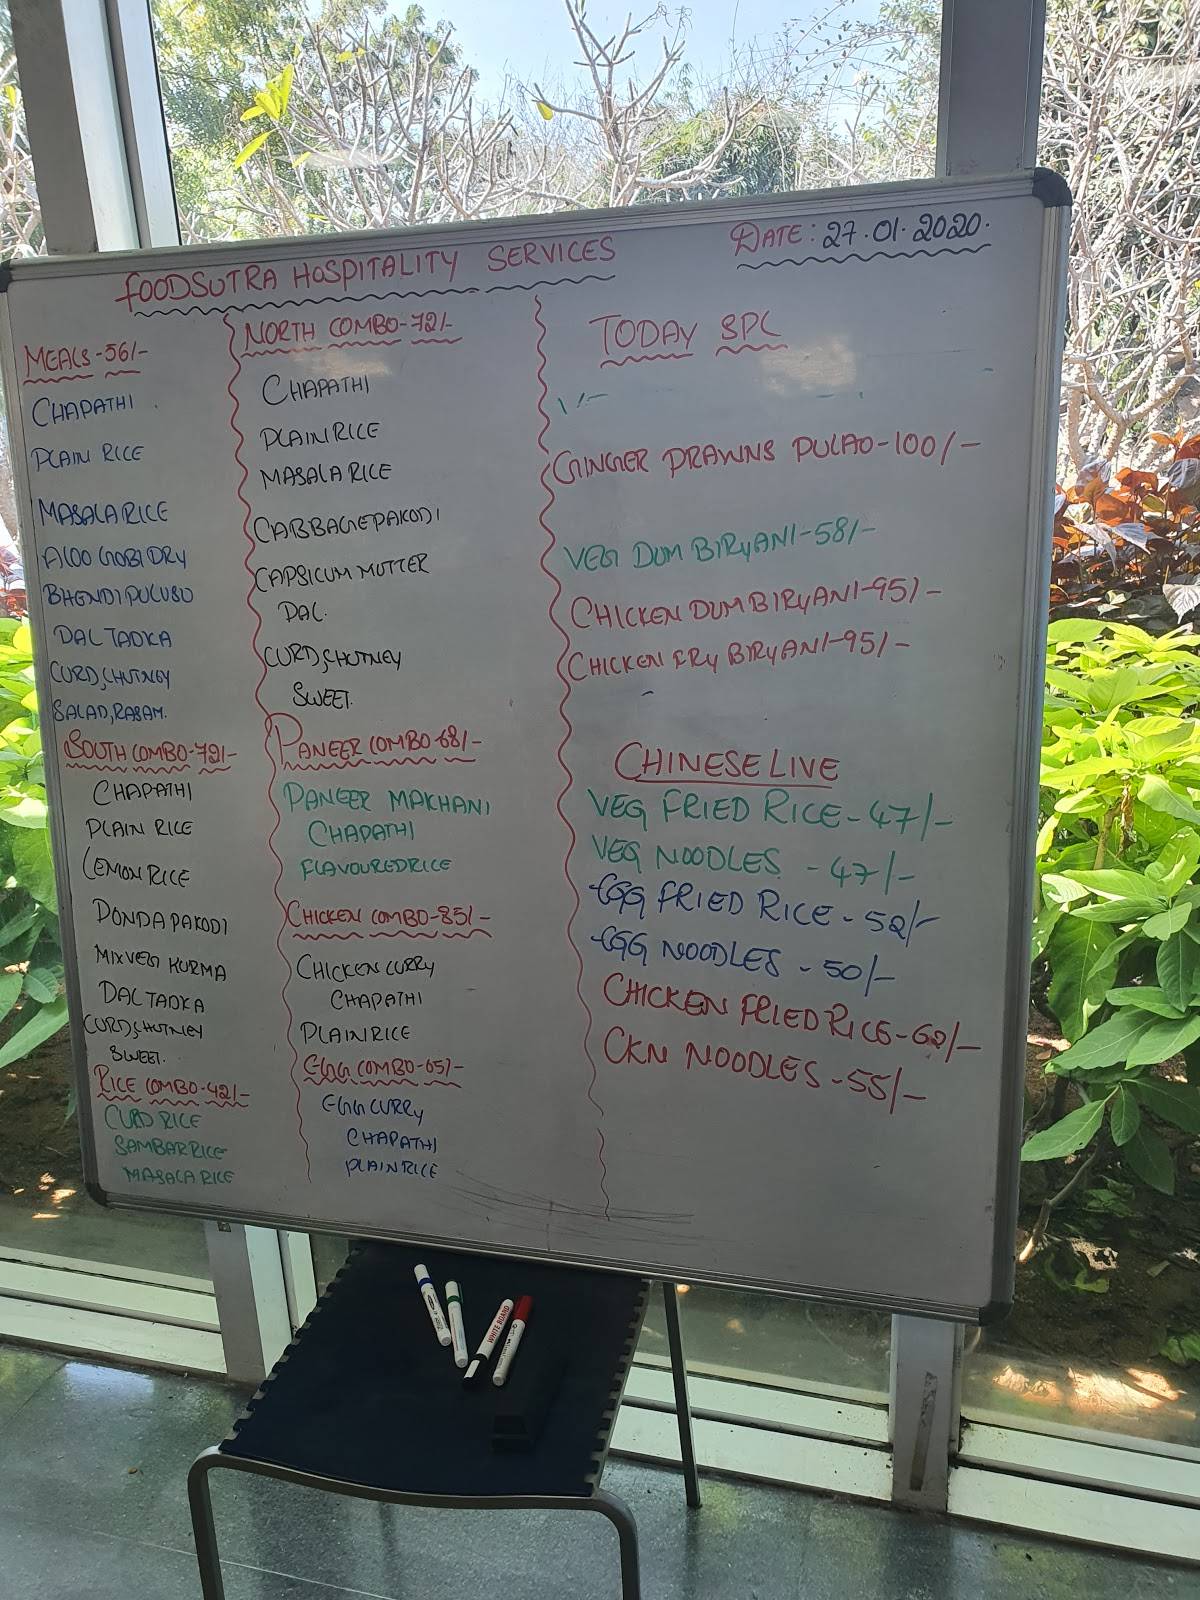 FOODSUTRA HOSPITALITY SERVICES
DATE: 27.01.2020.
MEALS-56/-
CHAPATHI
PLAIN RICE
MASALA RICE
ALOO GOBI DRY
BHENDI PULUSU
DAL TADKA
CURD, CHUTNEY
SALAD, RASAM.
SOUTH COMBO-72/-
CHAPATHI
PLAIN RICE
LEMON RICE
DONDA PAKODI
MIX VEG KURMA
DAL TADKA
CURD, CHUTNEY
SWEET.
RICE COMBO-42/-
CURD RICE
SAMBAR RICE
MASALA RICE
NORTH COMBO-72/-
CHAPATHI
PLAIN RICE
MASALA RICE
CABBAGE PAKODI
CAPSICUM MUTTER
DAL.
CURD, CHUTNEY
SWEET.
PANEER COMBO-68/-
PANEER MAKHANI
CHAPATHI
FLAVOURED RICE
CHICKEN COMBO-85/-
CHICKEN CURRY
CHAPATHI
PLAIN RICE
EGG COMBO-65/-
EGG CURRY
CHAPATHI
PLAIN RICE
TODAY SPL
GINGER PRAWNS PULAO-100/-
VEG DUM BIRYANI-58/-
CHICKEN DUM BIRYANI-95/-
CHICKEN FRY BIRYANI-95/-
CHINESE LIVE
VEG FRIED RICE-47/-
VEG NOODLES -47/-
EGG FRIED RICE-52/-
EGG NOODLES -50/-
CHICKEN FRIED RICE-62/-
CKN NOODLES-55/-
WHITE BOARD